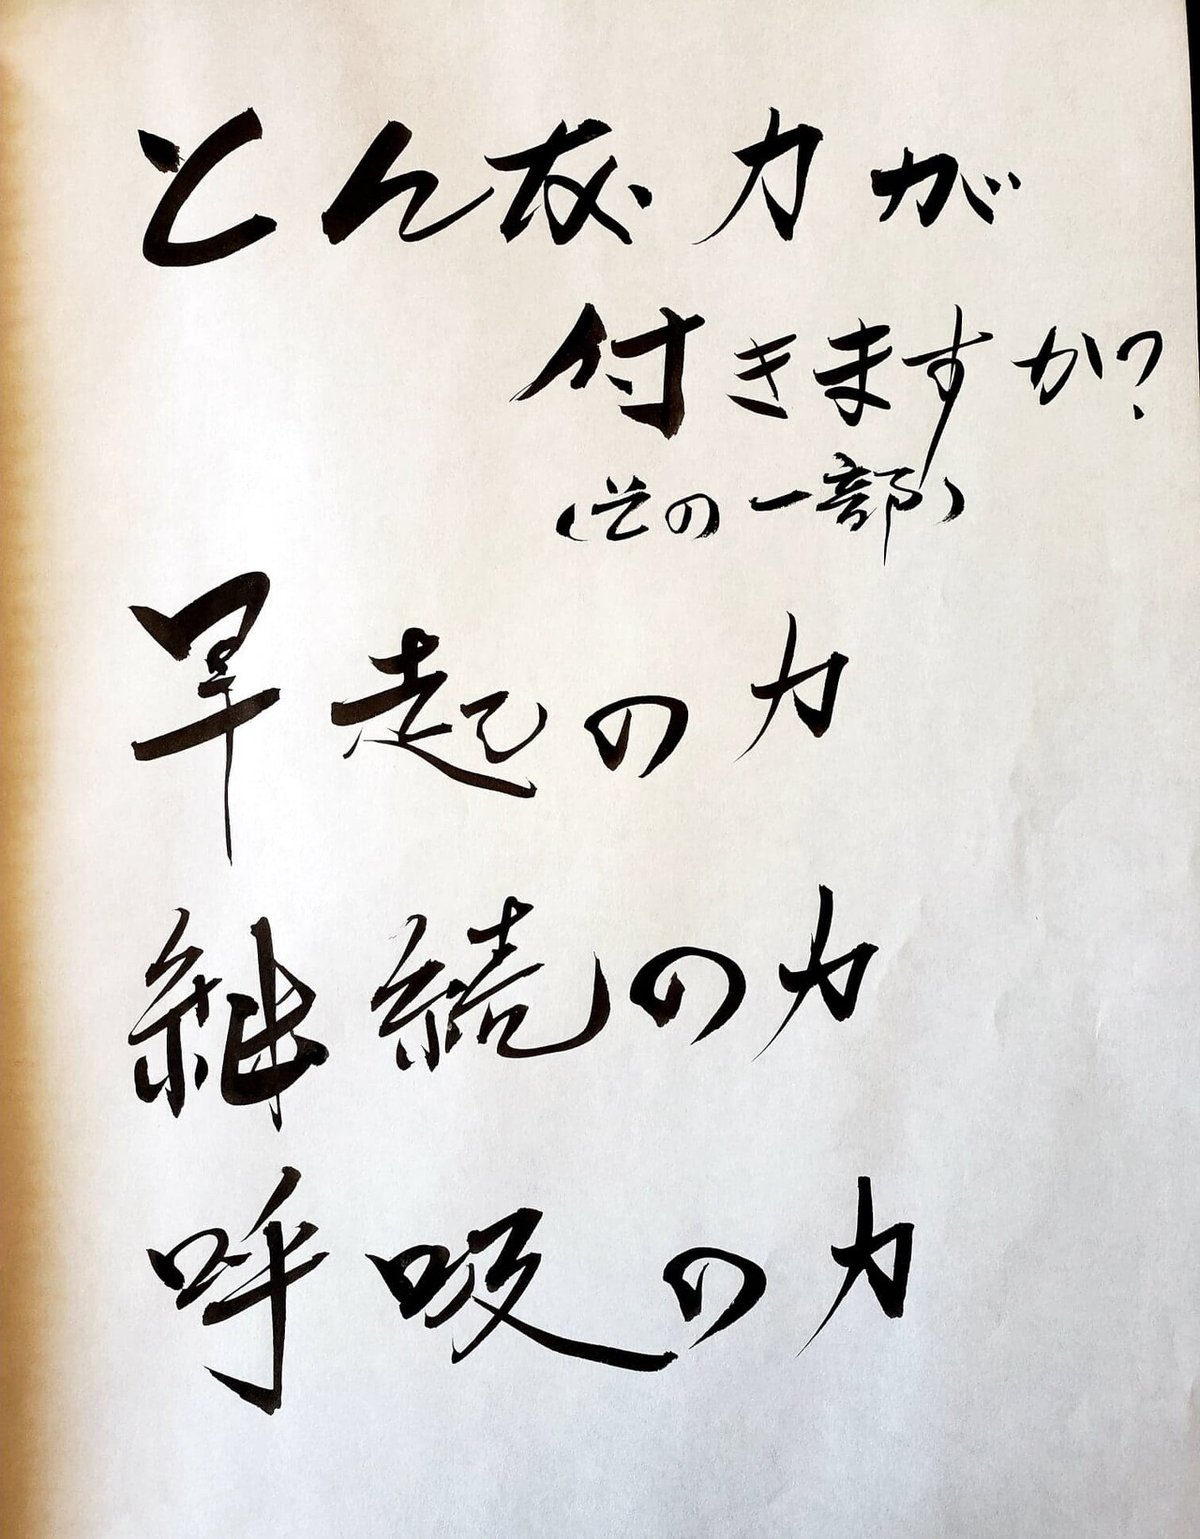 どんな力が
付きますか?
(その一部)
早起の力
継続の力
呼吸の力